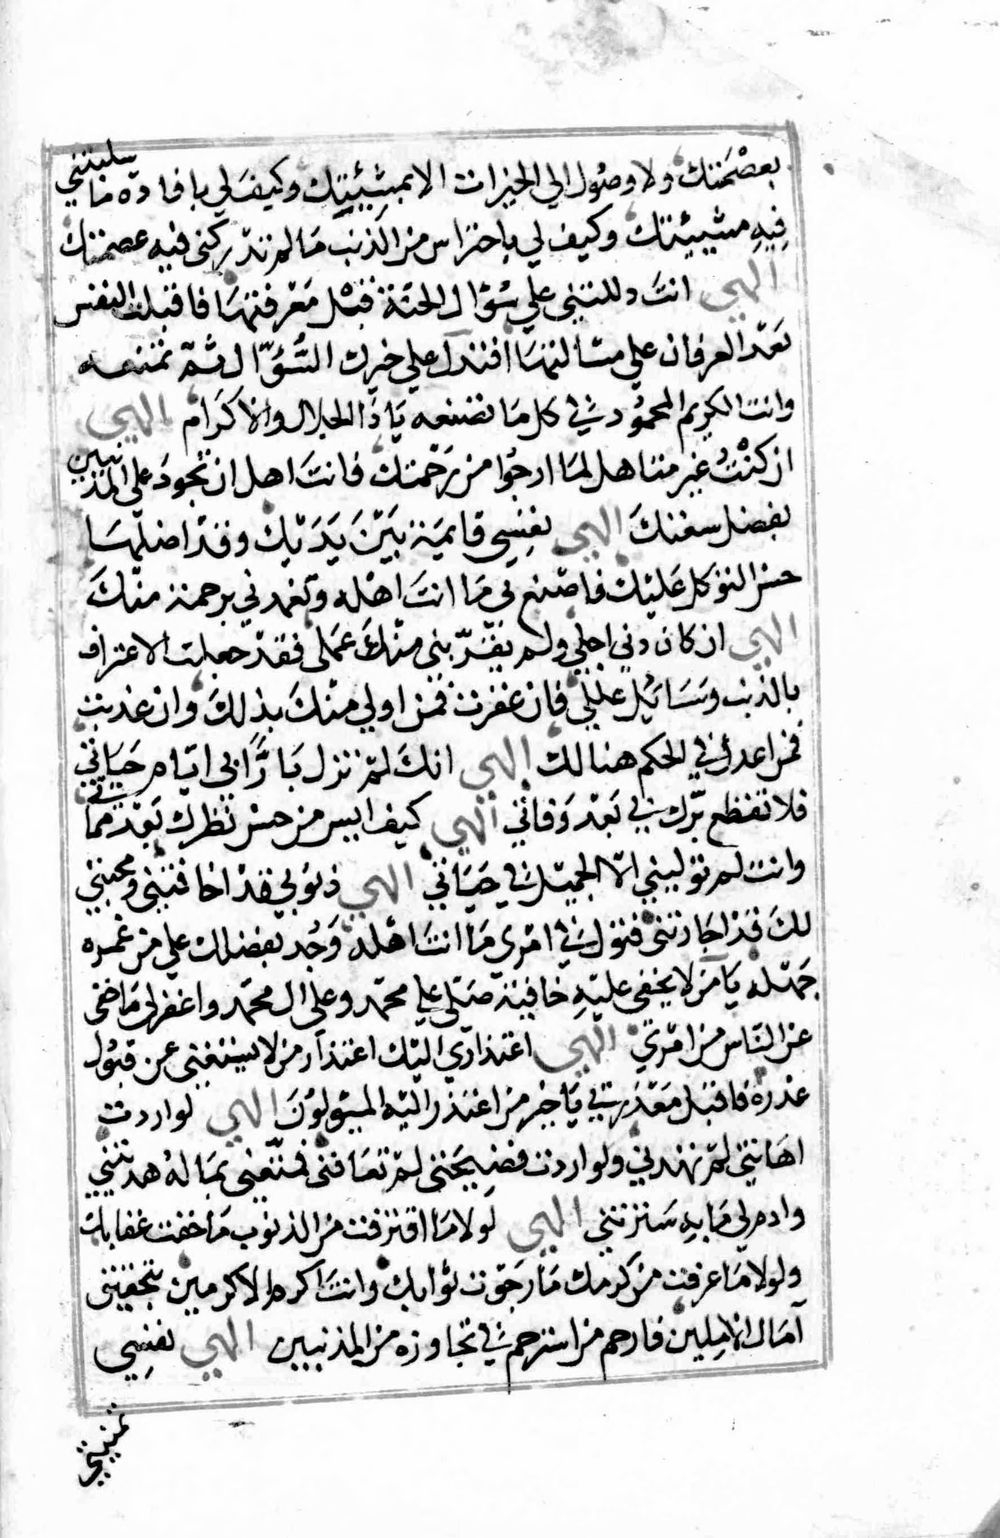 بعصْمَتك ولا وصُول الي الخيرات الا بمشِيَّئتِك وكيفَ لي بافاده ما يسلبتنى
فِيهِ مشيئتك وكيف لي باحتراس من الذنب مَا لم تدركنى فيه عصمتك
الهي انتَ دللتنى علي سُؤال الجنّة قبْل مَعْرفتهَا فاقبلت النفس
بَعْد العرفان علي مسَالتهَا افتدل علي خيرك السُّؤّال ثمّ تمنعه
وانت الكريم المحمُود في كل مَا تصنعه يَا ذَا الجلال والاكَرام الهي
ان كنْتُ غير مستاهل لمَا ارجُوا من رَحْمتك فانتَ اهل ان تجودَ على المذنبين
بفضل سعتكَ الهي نفسِى قايمَة بَيْنَ يَدَيْك وقدْ اضلّهَا
حسْن التوكل عَليْك فاصْنع بى مَا انتَ اهْله وتغمدني برحمة منْكَ
الهي ان كان دنى اجلي ولم يقرّبنى منْكَ عَملى فقدْ جعلت الاعتراف
بالذنب وَسَائِل عللي فان غفرت فمن اولي منْكَ بذلكَ وان عذبت
فمن اعدل في الحكم هنالك الهي انكَ لمْ تزل بَارًّا بى ايّام حَيَاتي
فلا تقطع برّك بي بَعْد وَفاتي الهي كيف ايس من حسْن نظرك بَعْد مماتي
وانت لم تولينى الّا الجميْل في حَيَاتي الهي ذنوبى قدْ اخافتنى ومحبتي
لكَ قدْ اجَارتنى فتول في امْري مَا انتَ اهْله وَجُد بفضلك علي من غمره
جهْله يَا مَن لا يخفى عليْهِ خافية صَلّى علي محمّد وعلي ال محمّد واغفر لى مَا خفى
عن النّاس من امْرِي الهي اعتذاري اليْك اعتذار من لا يستغنى عن قبُول
عذره فاقبل مَعْذرتي يَا خير من اعتذر اليْه المسِّولونَ الهي لو اردت
اهَانتي لمْ تهدني ولو اردت فضِيحَتى لمْ تعَافنى فمتّعنى بمَا لهُ هديتني
وادم لي مَا بهِ سَترتنى الهي لولا مَا اقترفت من الذنوب مَا خفت عقابك
ولولا مَا عرفت من كرمك مَا رَجوْت ثوابك وانتَ اكرم الاكرمين بتحقيق
آمَال الامِلين فارحم من استرحم في تجاوزه من المذنبين الهي نفسِى
تمنينى